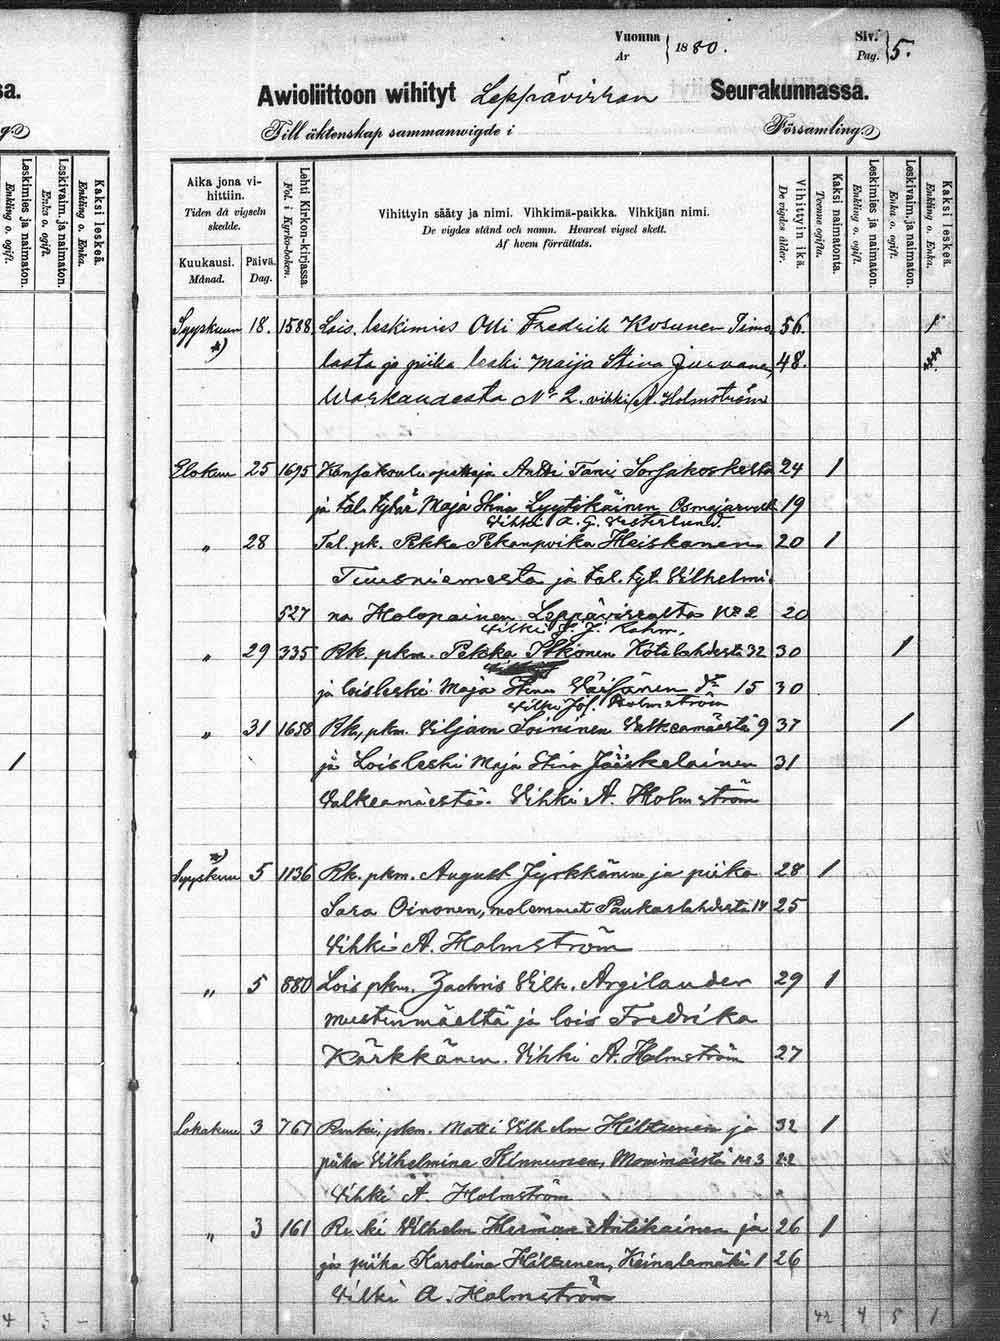 Vuonna
Ar
1880.
Siv.
Pag.
5.
Awioliittoon wihityt Leppävirran Seurakunnassa.
Till äktenskap sammanwigde i Församling.
Aika jona vihittiin.
Tiden då vigseln skedde.
Kuukausi.
Månad.
Päivä.
Dag.
Lehti Kirkon-kirjassa.
Fol. i Kyrko-boken.
Vihittyin sääty ja nimi. Vihkimä-paikka. Vihkijän nimi.
De vigdes stånd och namn. Hvarest vigsel skett.
Af hvem förrättats.
Vihittyin ikä.
De vigdes ålder.
Kaksi naimatonta.
Tvenne ogifta.
Leskimies ja naimaton.
Enkling o. ogift.
Leskivaim. ja naimaton.
Enka o. ogift.
Kaksi leskeä.
Enkling o. Enka.
Syyskuun 18. 1588 Lois. leskimies Olli Fredrik Kosunen Timo 56. 1
lasta ja piika leski Maija Stina 48.
Warkaudesta No 2. vihki A. Holmström
Elokuu 25 1695 Kansakoulu opettaja Antti Tarri Sorsakoskelta 24 1
ja tal. tytär Maja Stina Lyytikäinen Osmajärvelt 19
Vihki A. G. Westerlund.
" 28 Tal. pk. Pekka Pekanpoika Heiskanen 20 1
Tuusniemesta ja tal. tyt. Vilhelmi
527 na Holopainen Leppävirralta No 2 20
Vihki J. J. Rahm.
" 29 335 Rk. pkm. Pekka Itkonen Kotalahdesta 32 30 1
ja loisleski Maja Stina Väisänen 15 30
Vihki Joh. Holmström
" 31 1658 Rk. pkm. Viljam Soininen Valkeamäestä 9 37 1
ja Loisleski Maja Stina Jääskelainen 31
Valkeamäestä. Vihki A. Holmström
Syyskuu 5 1136 Rk. pkm. August Jyrkkänen ja piika 28 1
Sara Oinonen, molemmat Paukarlahdesta 14 25
Vihki A. Holmström
" 5 880 Lois pkm. Zachris Vilh. Argilander 29 1
Mustinmäeltä ja lois Fredrika
Kärkkänen. Vihki A. Holmström 27
Lokakuu 3 767 Renki, pkm. Matti Vilhelm Hiltunen ja 32 1
piika Vilhelmina Kinnunen, Moninmäestä No 3 22
Vihki A. Holmström
" 3 161 Renki Vilhelm Herman Antikainen ja 26 1
ja piika Karolina Hiltunen, Keinälämäki 1 26
Vihki A. Holmström
42 4 5 1